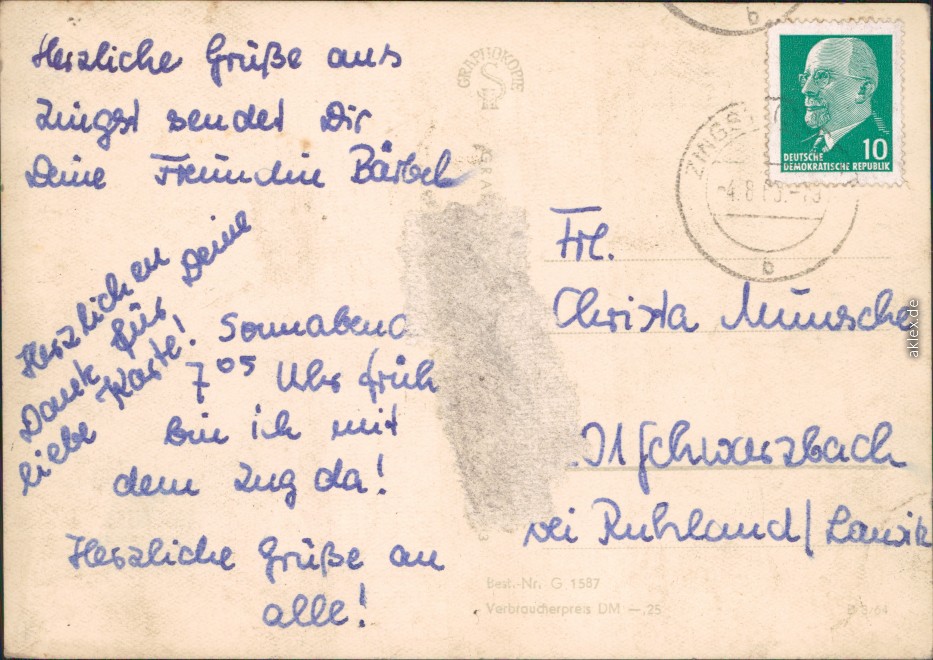 Herzliche Grüße aus
Zingst sendet Dir
Deine Freundin Bärbel
Herzlichen
Dank für Deine
liebe Karte!
Sonnabend
7 05 Uhr früh
bin ich mit
dem Zug da!
Herzliche Grüße an
alle!
GRAPHOKOPIE
DEUTSCHE
DEMOKRATISCHE REPUBLIK
10
ZINGST
b
b
Frl.
Christa
Schwarzbach
bei Ruhland/
Best.-Nr. G 1587
Verbraucherpreis DM —,25
B 3/64
akleX.de